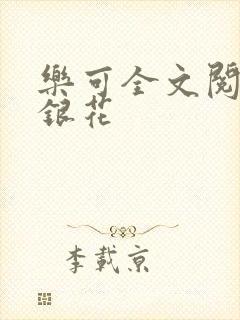 樂可全文閱
銀花
李載京